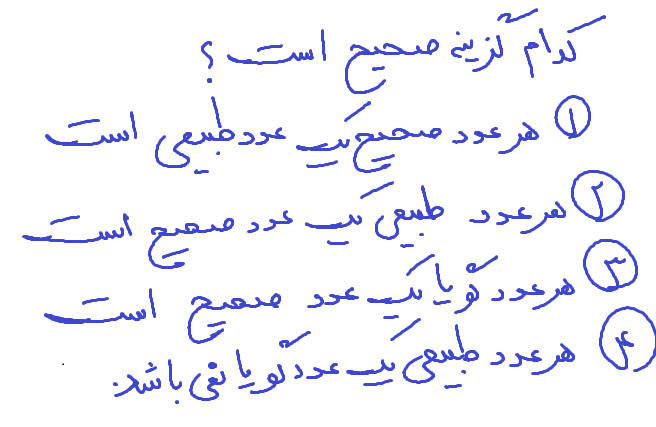 کدام گزینه صحیح است ؟
۱ هر عدد صحیح یک عدد طبیعی است
۲ هر عدد طبیعی یک عدد صحیح است
۳ هر عدد گویا یک عدد صحیح است
۴ هر عدد طبیعی یک عدد گویا نمی باشد.